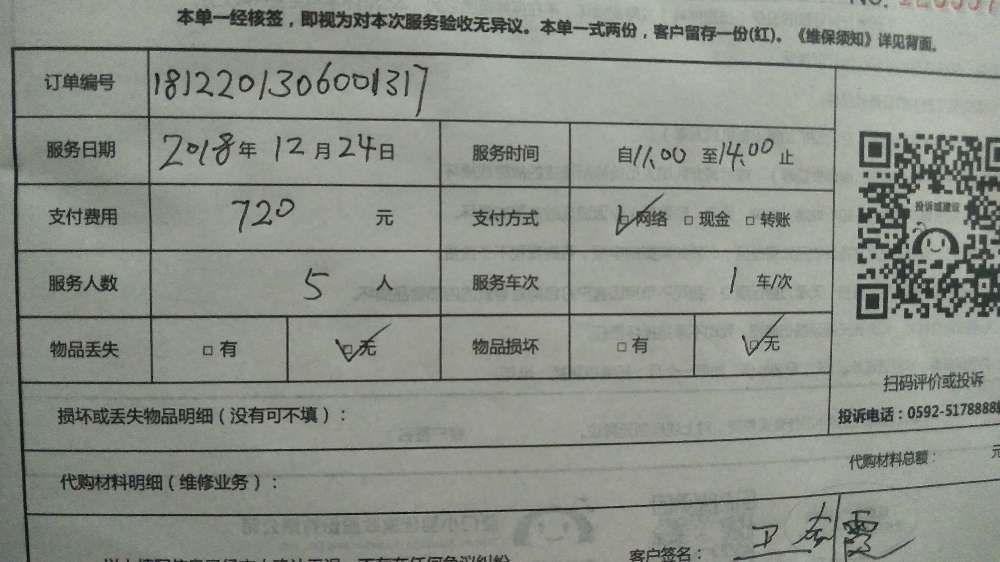 NO.
本单一经核签，即视为对本次服务验收无异议。本单一式两份，客户留存一份(红)。《维保须知》详见背面。
订单编号 1812201306001317
服务日期 2018年 12月 24日 服务时间 自11:00 至14:00 止
支付费用 720 元 支付方式 □网络 □现金 □转账
投诉或建议
服务人数 5 人 服务车次 1 车/次
物品丢失 □有 □无 物品损坏 □有 □无
扫码评价或投诉
损坏或丢失物品明细（没有可不填）：
投诉电话：0592-5178888
代购材料明细（维修业务）：
代购材料总额： 元
客户签名：